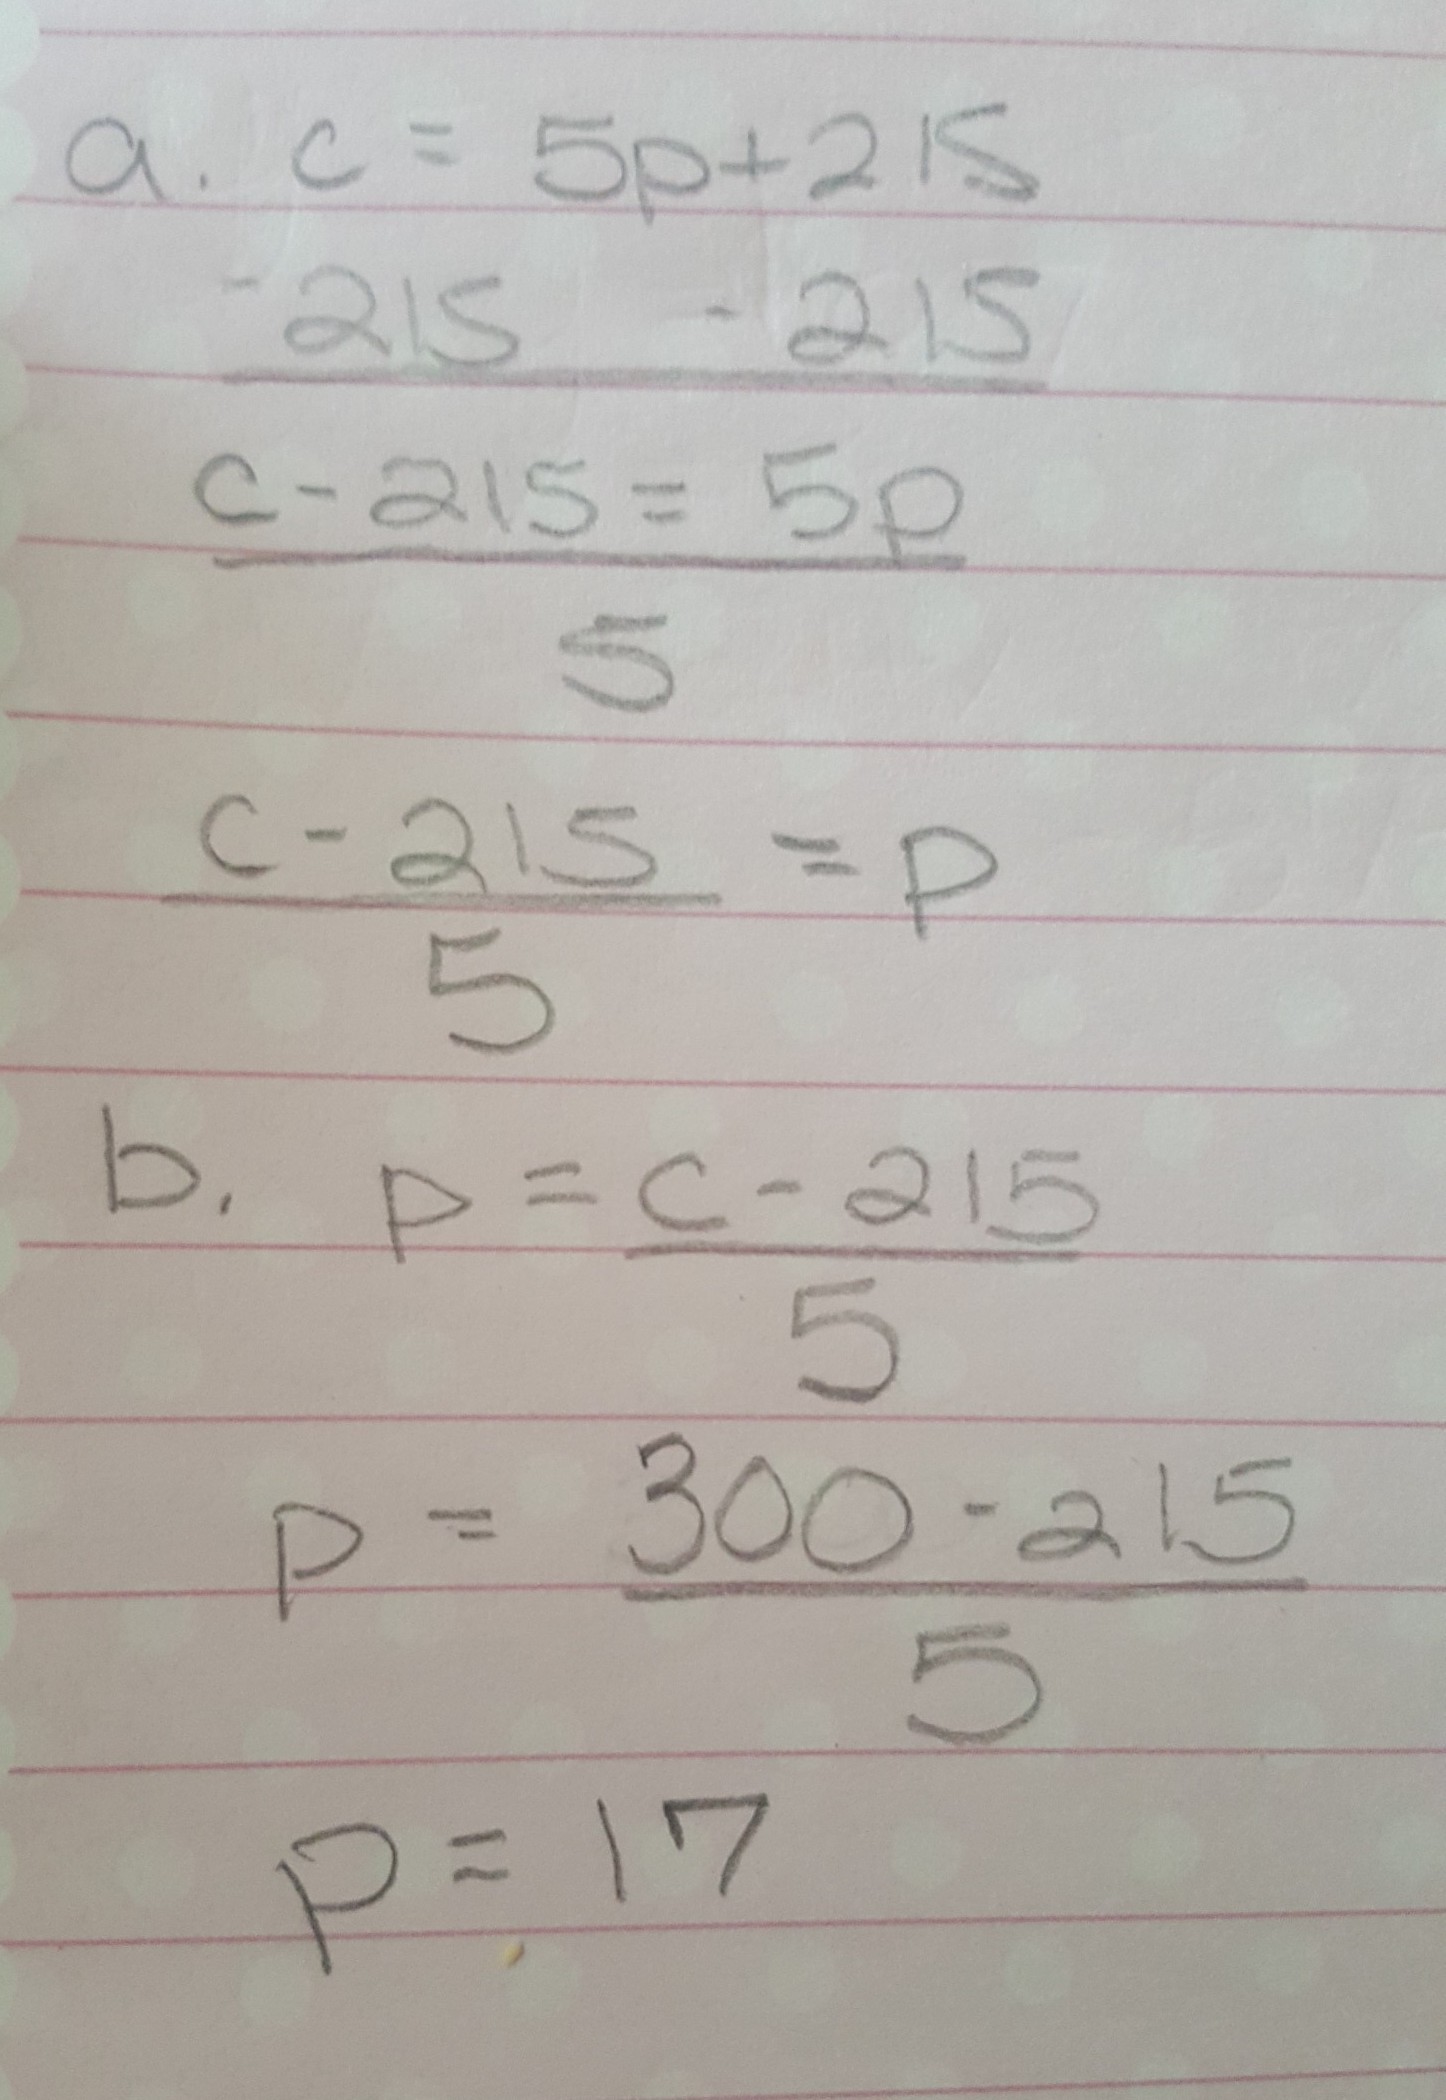 a. c = 5p+215
-215 -215
c - 215 = 5p
5
c - 215 = p
5
b. p = c - 215
5
p = 300 - 215
5
p = 17